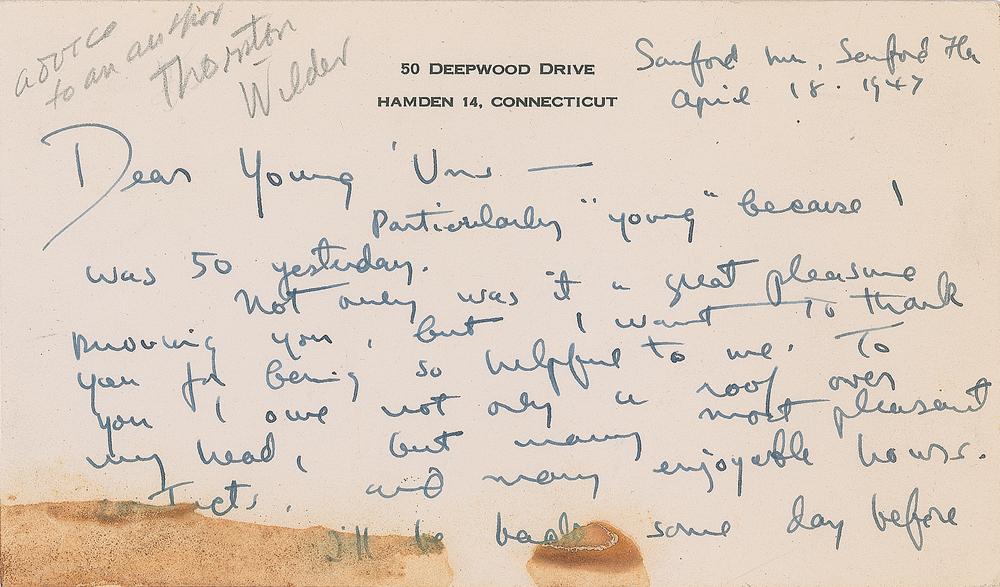 advice
to an author
Thornton
Wilder
50 DEEPWOOD DRIVE
HAMDEN 14, CONNECTICUT
Sanford Inn, Sanford Fla
April 18. 1947
Dear Young 'Uns —
Particularly "young" because I
was 50 yesterday.
Not only was it a great pleasure
knowing you, but I want to thank
you for being so helpful to me. To
you I owe not only a roof over
my head, but many most pleasant
contacts, and many enjoyable hours.
I'll be back some day before